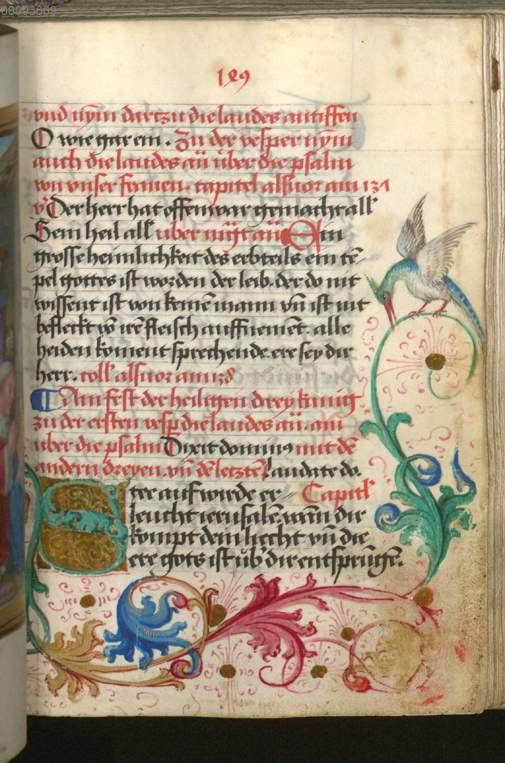 00093069
129
vnd nym dartzu die laudes antiffen
O wie gar ein. Zu der vesper nym
auch die laudes añ über die psalm
von vnser frauen. capitel als vor am 131
Der herr hat offenwar gemacht all
Sein heil all über magt añ Ain
grosse heimlichkeit des erbteils ein tē
pel gottes ist worden der leib. der do nit
wissent ist von keinē mann vñ ist nit
befleckt vō irē fleisch auffnemēt. alle
heiden koment sprechende. ere sey dir
herr. coll als vor am 138
Am fest der heiligen drey kunig
zu der ersten vesp die laudes añ. am
uber die psalm Dixit dominus mit dē
andern dreyen. vñ dē letztē Laudate do.
Stee auf wirde er Capitl
leucht ierusalē, wann dir
kompt dein liecht vñ die
ere gots ist üb dir entsprūgen.